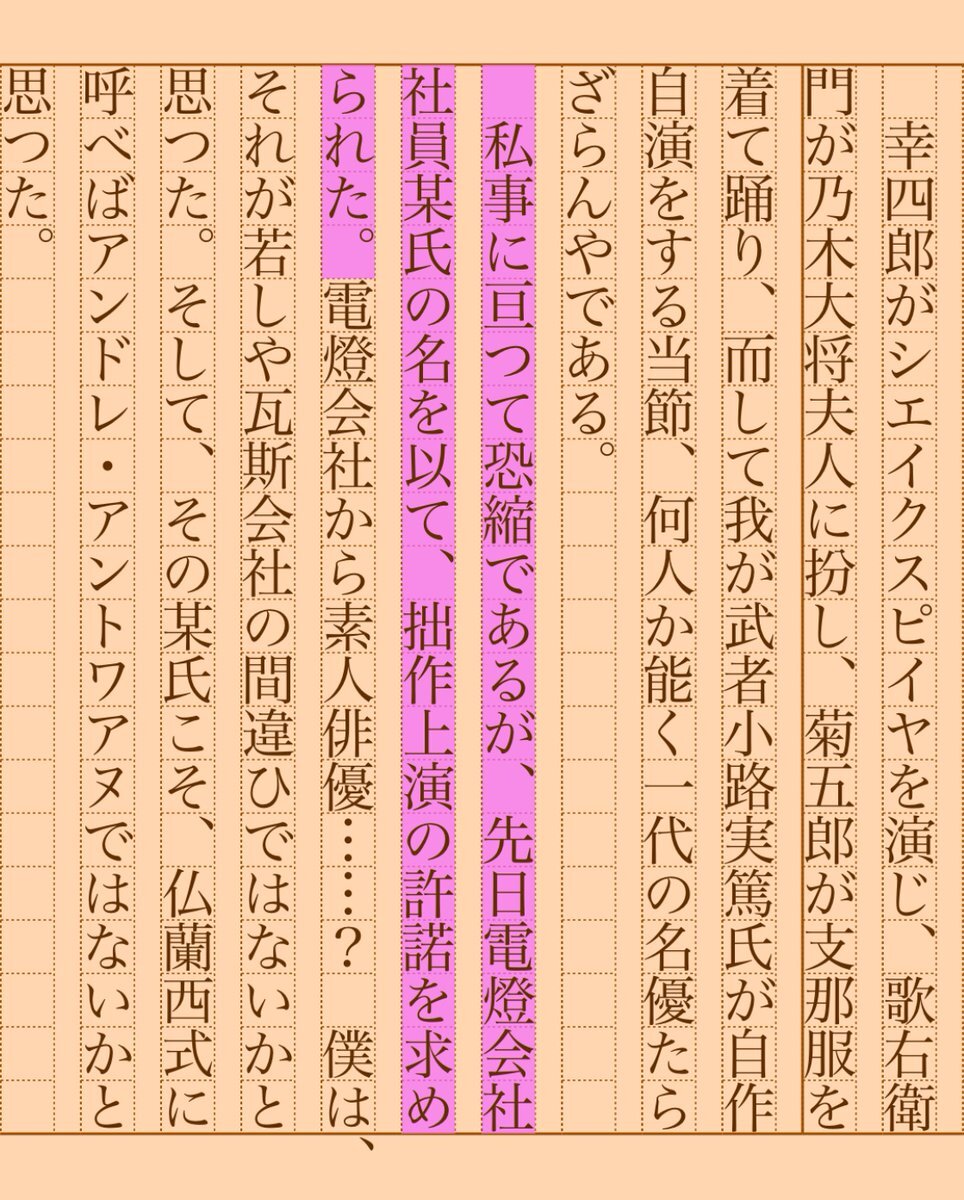 幸四郎がシエイクスピイヤを演じ、歌右衛
門が乃木大将夫人に扮し、菊五郎が支那服を
着て踊り、而して我が武者小路実篤氏が自作
自演をする当節、何人か能く一代の名優たら
ざらんやである。
　私事に亘つて恐縮であるが、先日電燈会社
社員某氏の名を以て、拙作上演の許諾を求め
られた。電燈会社から素人俳優……？　僕は、
それが若しや瓦斯会社の間違ひではないかと
思つた。そして、その某氏こそ、仏蘭西式に
呼べばアンドレ・アントワアヌではないかと
思つた。